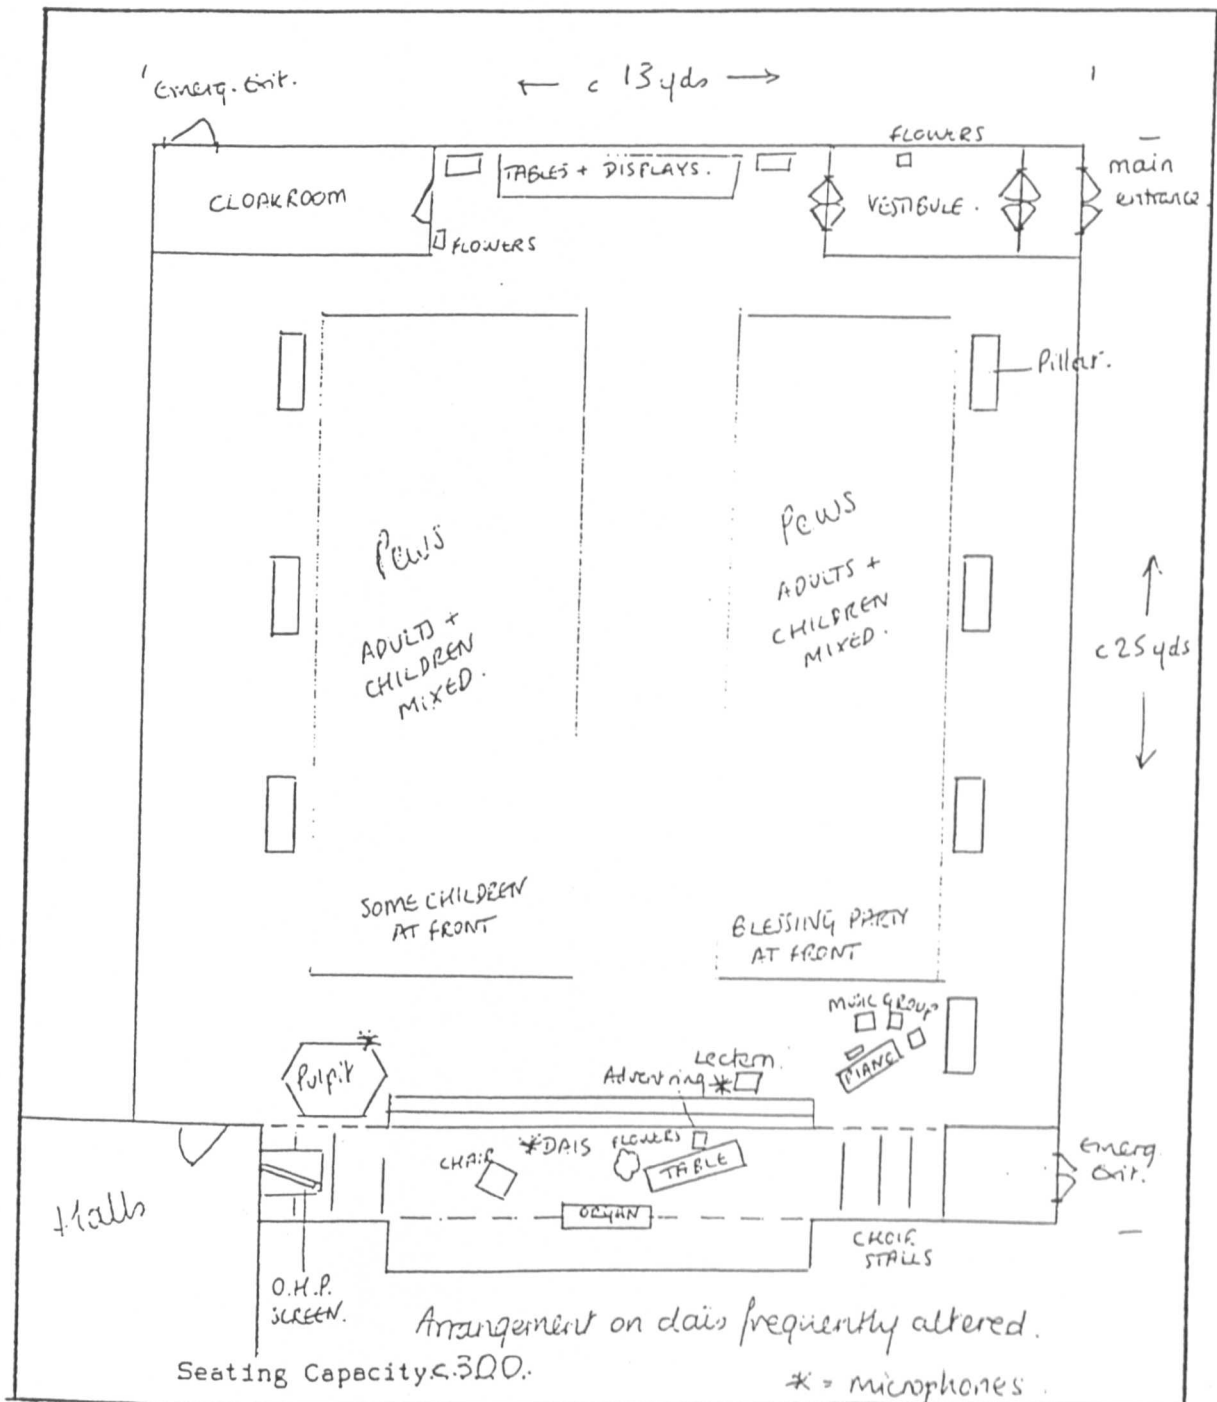 Emerg. Exit.
← c 13 yds →
FLOWERS
main
entrance.
CLOAKROOM
TABLES + DISPLAYS.
VESTIBULE.
FLOWERS
Pillar.
Pews
ADULTS +
CHILDREN
MIXED.
Pews
ADULTS +
CHILDREN
MIXED.
c 25 yds
SOME CHILDREN
AT FRONT
BLESSING PARTY
AT FRONT
MUSIC GROUP
PIANO
Pulpit
*
Lectern.
Advent ring *
*DAIS
FLOWERS
CHAIR
TABLE
ORGAN
Emerg.
Exit.
Halls
CHOIR
STALLS
O.H.P.
SCREEN.
Arrangement on dais frequently altered.
Seating Capacity c.300.
* = microphones.